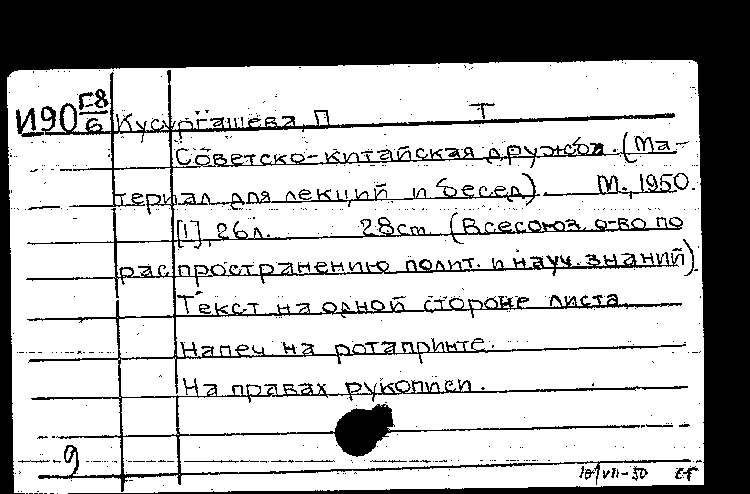 И90 Г8/6 Кусургашева, П Т
Советско-китайская дружба. (Ма-
териал для лекций и бесед). М., 1950.
[1], 26л. 28cm (Всесоюз. о-во по
распространению полит. и науч. знаний)
Текст на одной стороне листа
Напеч на ротапринте.
На правах рукописи.
9